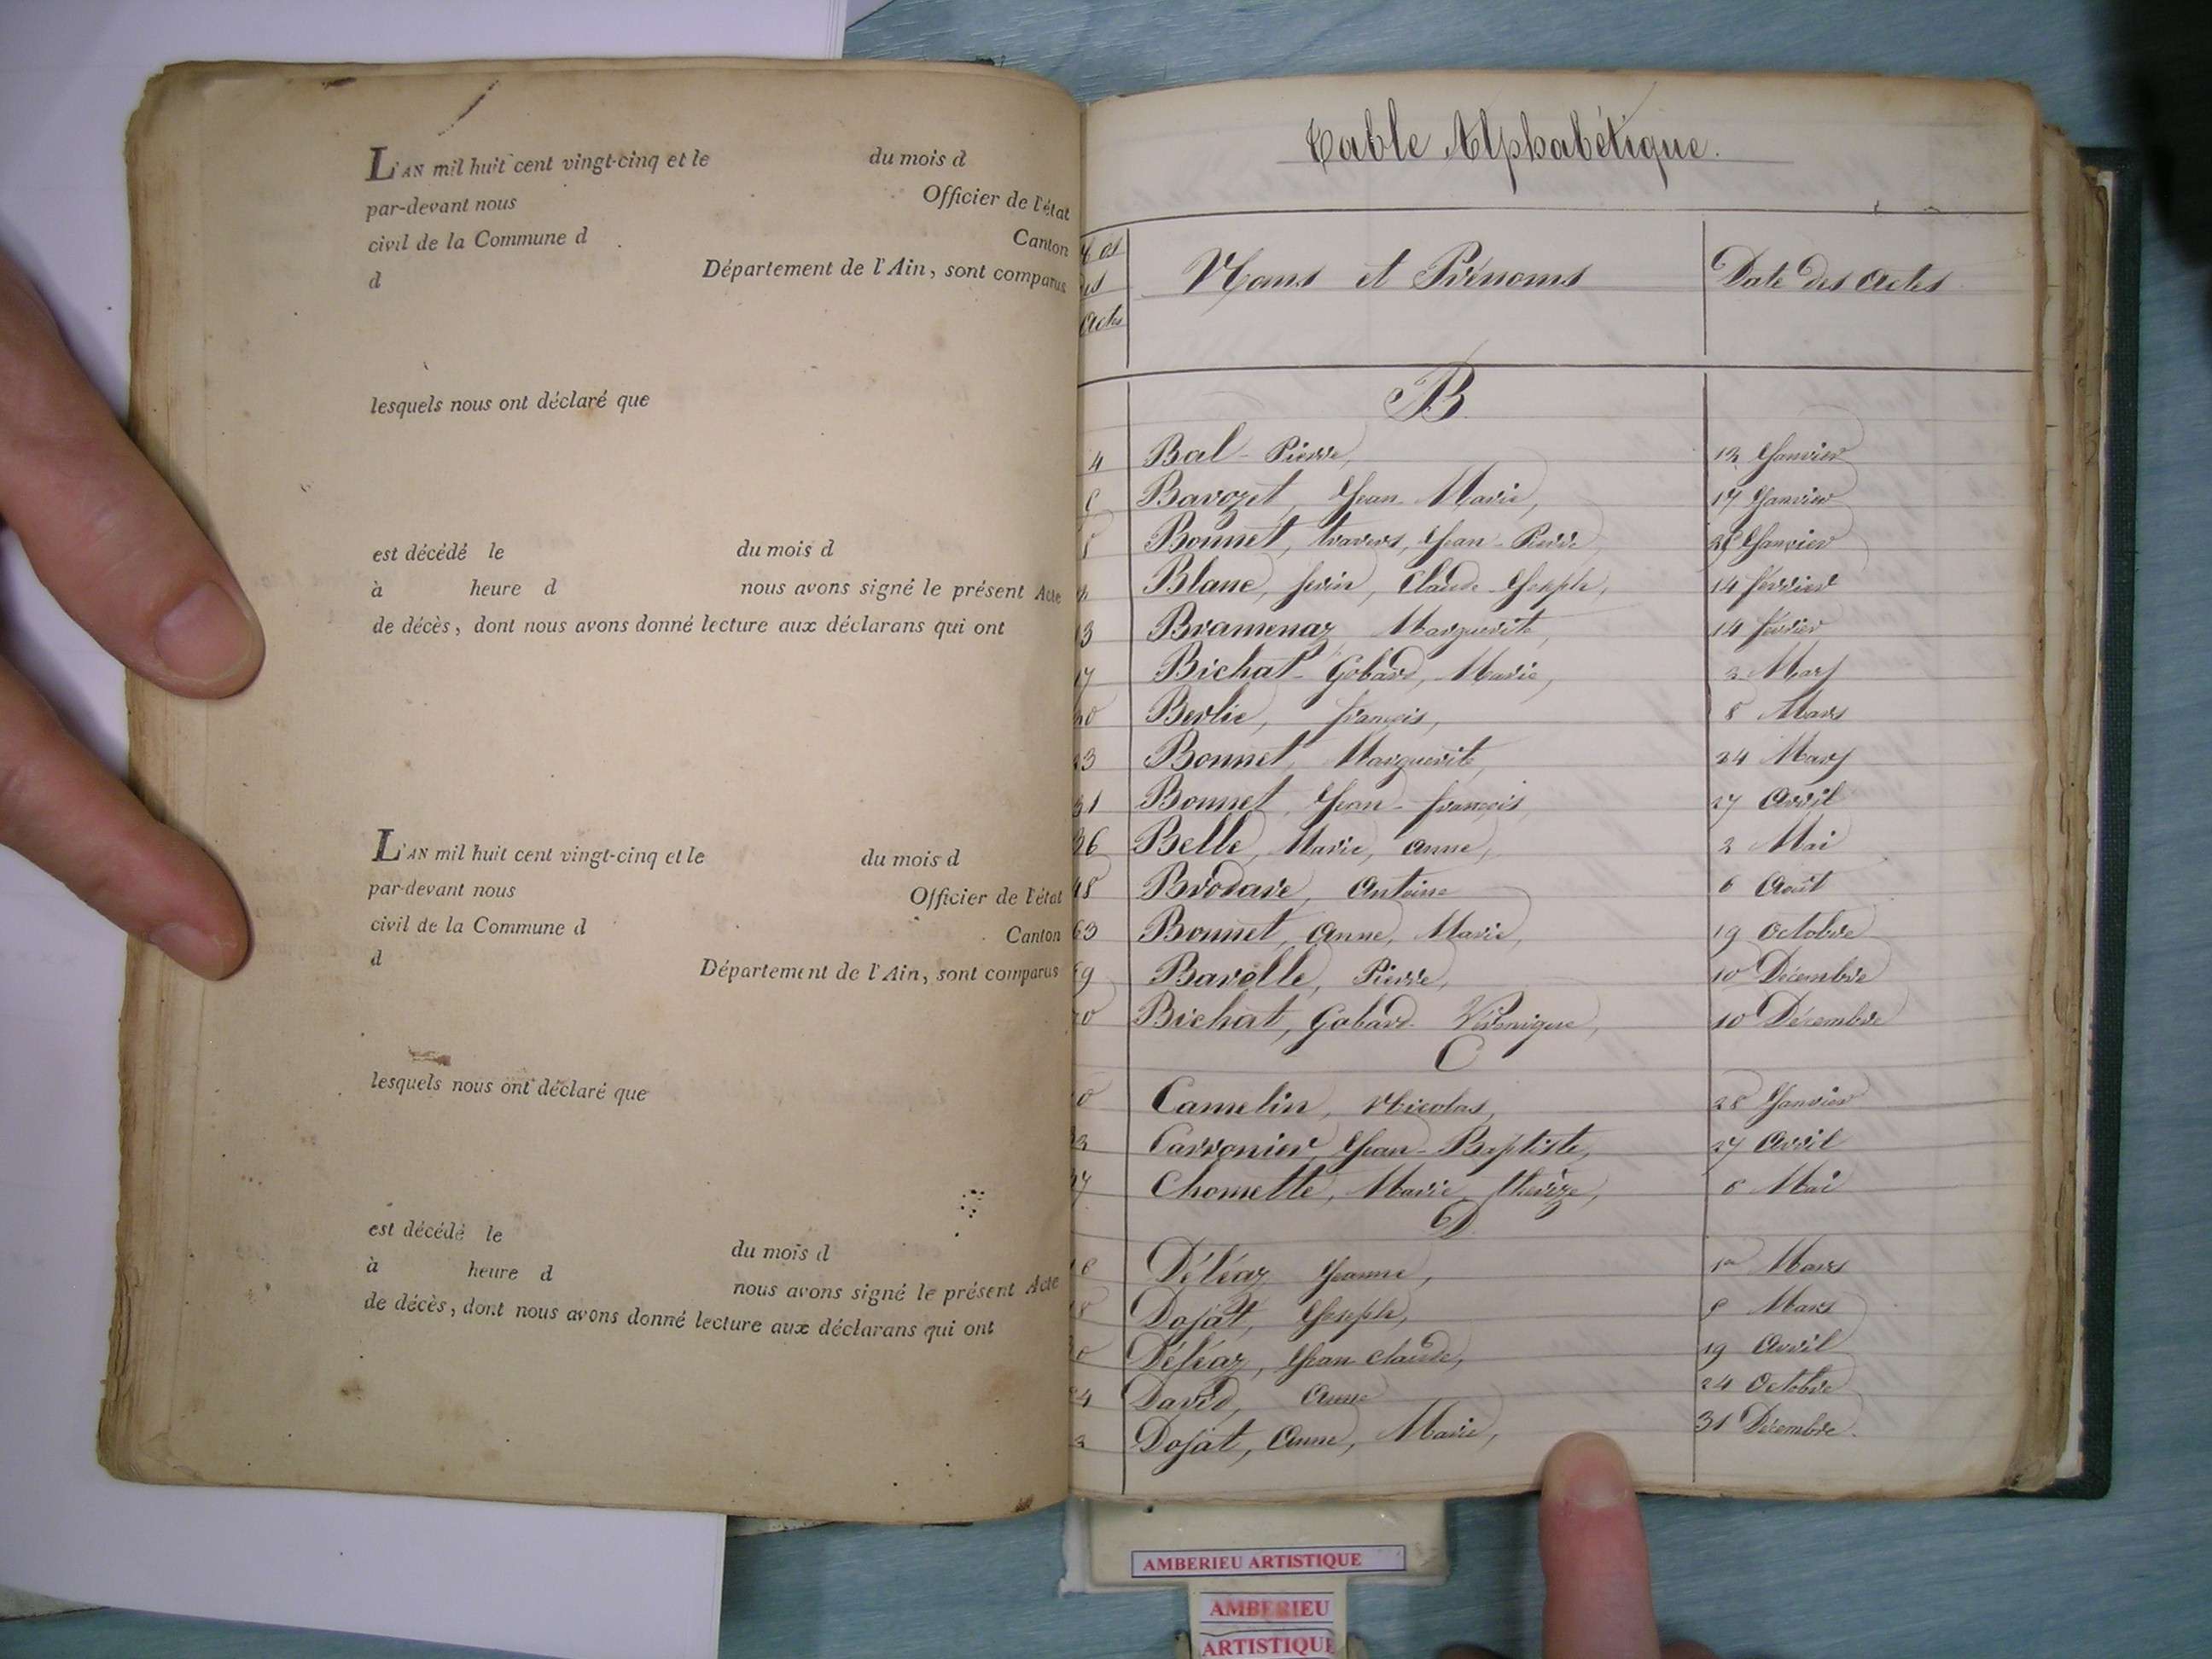 L'AN mil huit cent vingt-cinq et le du mois d
par-devant nous Officier de l'état
civil de la Commune d Canton
d Département de l'Ain, sont comparus
lesquels nous ont déclaré que
est décédé le du mois d
à heure d nous avons signé le présent Acte
de décès, dont nous avons donné lecture aux déclarans qui ont
L'AN mil huit cent vingt-cinq et le du mois d
par-devant nous Officier de l'état
civil de la Commune d Canton
d Département de l'Ain, sont comparus
lesquels nous ont déclaré que
est décédé le du mois d
à heure d nous avons signé le présent Acte
de décès, dont nous avons donné lecture aux déclarans qui ont
Table Alphabétique.
Nos
des
Actes
Noms et Prénoms
Date des Actes
B
4 Bal Pierre, 12 Janvier
Bavozet, Jean Marie, 17 Janvier
Bonnet, travers, Jean-Pierre Janvier
Blanc, Claude Joseph, 14 février
13 Bramenaz, Marguerite, 14 février
17 Bichat Gobard, Marie, 2 Mars
20 Berlie, françois, 8 Mars
23 Bonnet, Marguerite, 24 Mars
31 Bonnet, Jean-françois, 27 Avril
36 Belle, Marie, anne, 2 Mai
48 Brodare, Antoine 6 Août
63 Bonnet, Anne, Marie, 19 Octobre
69 Bavolle, Pierre, 10 Décembre
70 Bichat, Gobard Véronique, 10 Décembre
C
Camelin, Nicolas, 28 Janvier
Carronier, Jean-Baptiste, 27 Avril
37 Chomette, Marie thérèze, 6 Mai
D
16 Déléaz Jeanne, 1er Mars
18 Dojat, Joseph, Mars
Déléaz, Jean claude, 19 Avril
64 David, Anne 24 Octobre
Dojat, Anne, Marie, 31 Décembre.
AMBERIEU ARTISTIQUE
AMBERIEU
ARTISTIQUE